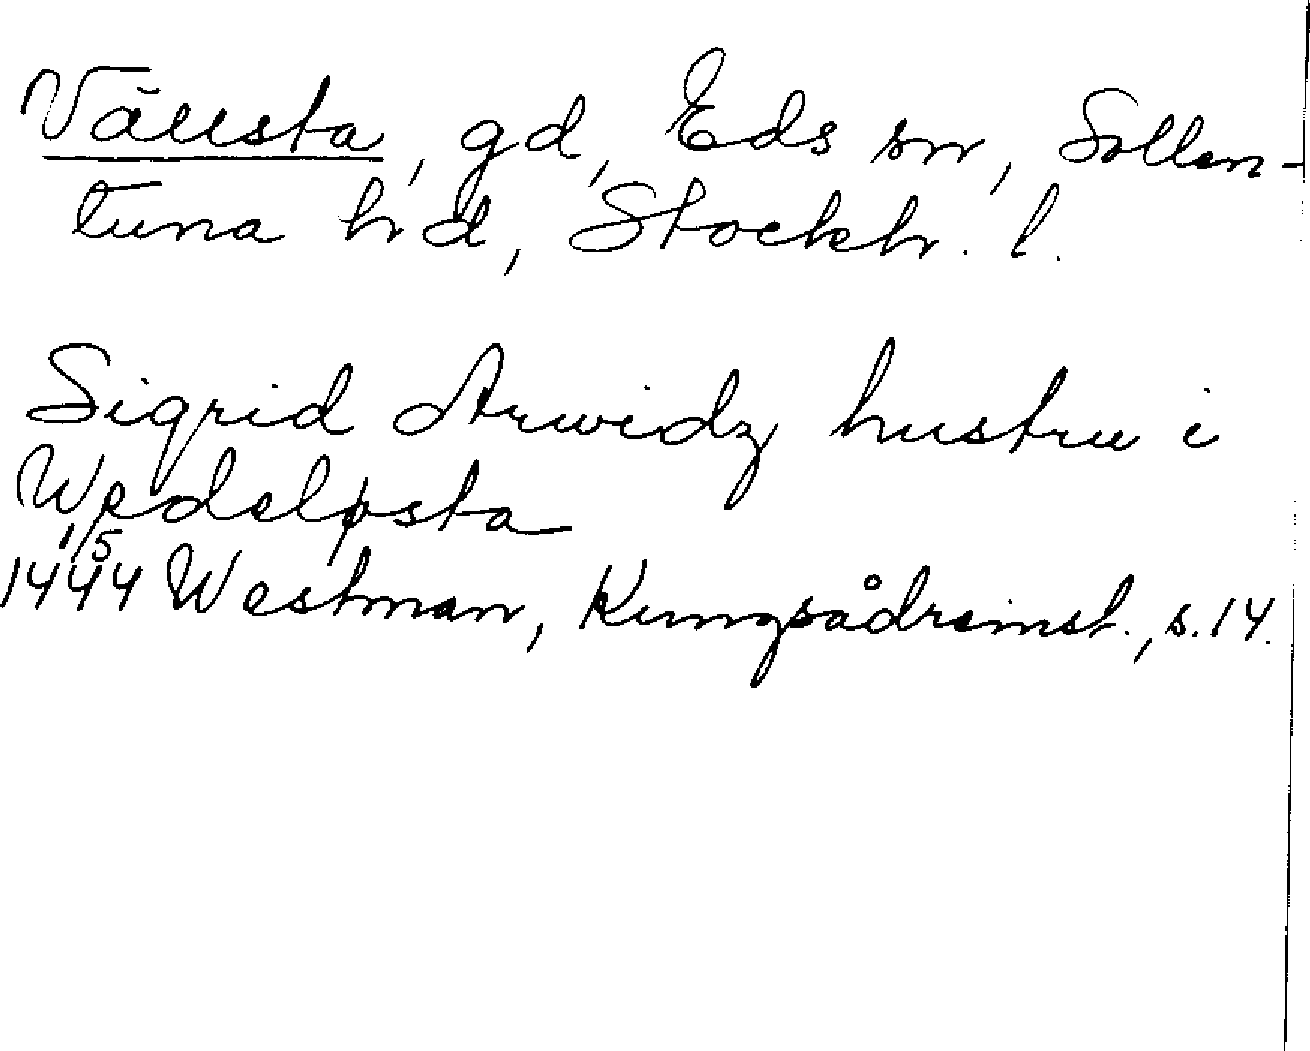 Vällsta, gd, Eds sn, Sollen-
tuna hd, Stockh. l.
Sigrid Arwidz hustru i
Wædeløsta
1/5
1444 Westman, Kungsådreinst., s. 14.